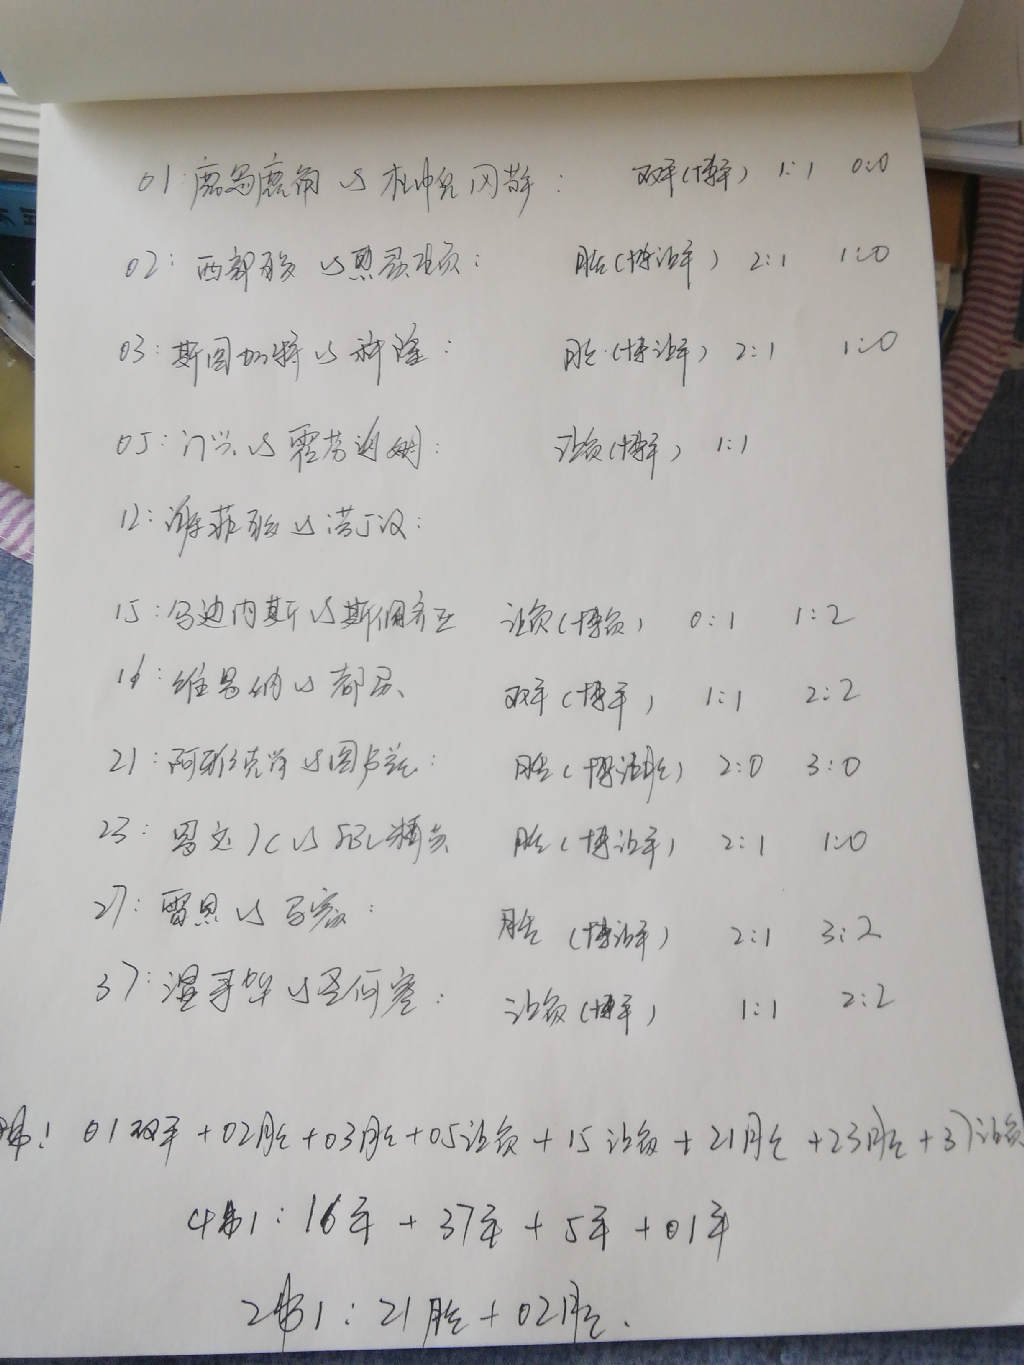 01:鹿岛鹿角 VS 杜冈散: 双平(博平) 1:1 0:0
02:西部联 VS 惠灵顿: 胜(博让平) 2:1 1:0
03:斯图加特 VS 科隆: 胜(博让平) 2:1 1:0
05:门兴 VS 霍芬海姆: 让负(博平) 1:1
12:谢菲联 VS 诺丁汉:
15:马迪内斯 VS 斯佩齐亚 让负(博负) 0:1 1:2
16:维罗纳 VS 都灵 双平(博平) 1:1 2:2
21:阿贾克斯 VS 图卢兹: 胜(博让胜) 2:0 3:0
23:罗达JC VS SBV精英 胜(博让平) 2:1 1:0
27:雷恩 VS 马赛: 胜(博让平) 2:1 3:2
37:温哥华 VS 圣何塞: 让负(博平) 1:1 2:2
串1 01双平+02胜+03胜+05让负+15让负+21胜+23胜+37让负
4串1:16平+37平+5平+01平
2串1:21胜+02胜.